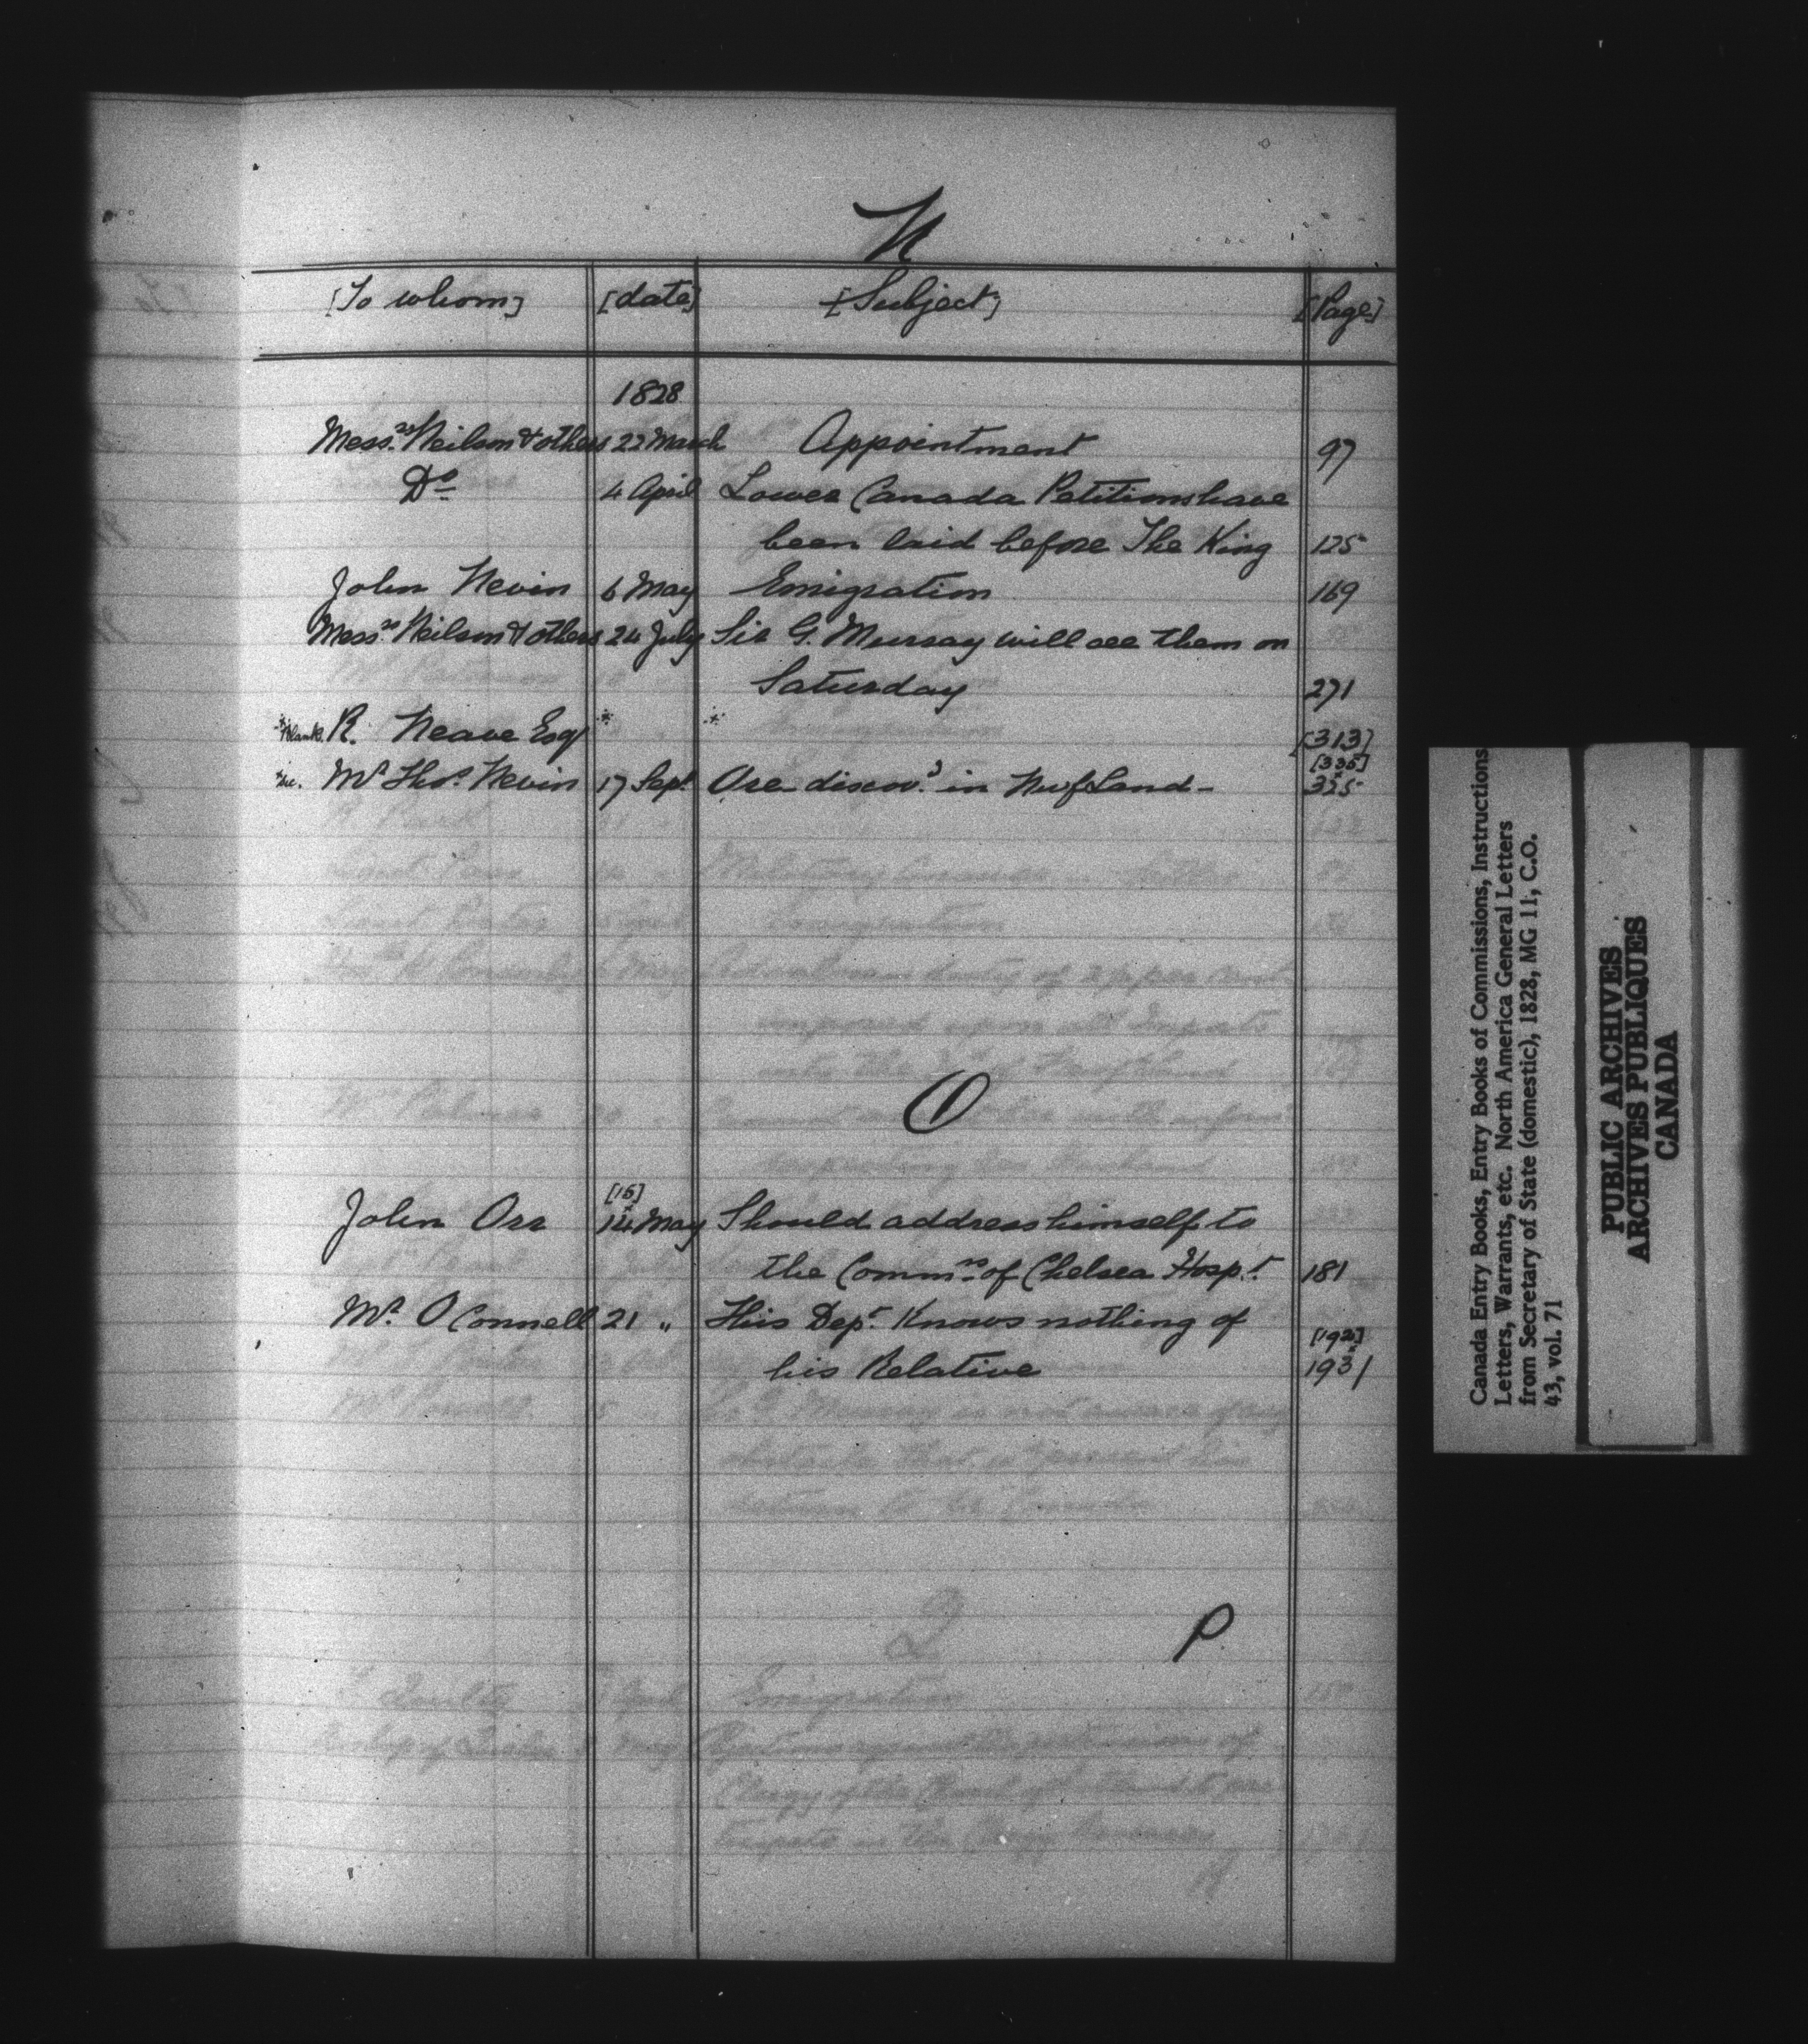 N
[To whom] [date] [Subject] [Page]
1828
Mess.rs Neilson & others 22 March Appointment 97
Do 4 April Lower Canada Petitions have
been laid before The King 125
John Nevin 6 May Emigration 169
Mess.rs Neilson & others 24 July Sir G. Murray will see them on
Saturday 271
*Blank. R. Neave Esq * * [313]
*sic. Mr Thos. Nevin 17 Sept. Ore discov.d in Newf Land - [335]
325
O
John Orr [15]
14 May Should address himself to
the Comm.rs of Chelsea Hosp.t 181
Mr. O Connell 21 " This Dep.t Knows nothing of [192]
his Relative 193 1
P.
Canada Entry Books, Entry Books of Commissions, Instructions
Letters, Warrants, etc. North America General Letters
from Secretary of State (domestic), 1828, MG 11, C.O.
43, vol. 71
PUBLIC ARCHIVES
ARCHIVES PUBLIQUES
CANADA